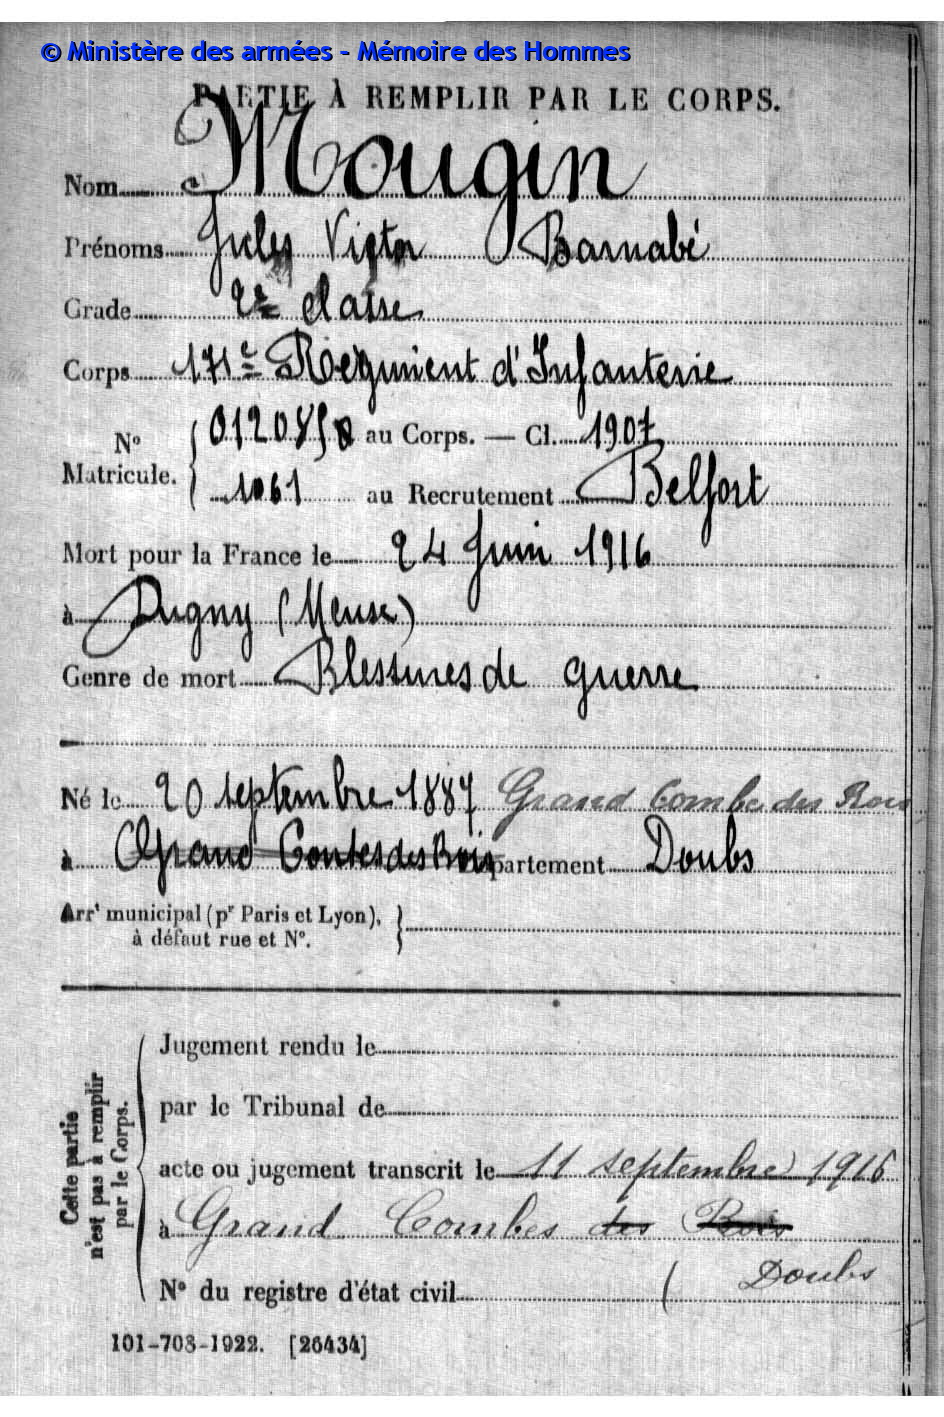 © Ministère des armées - Mémoire des Hommes
PARTIE À REMPLIR PAR LE CORPS.
Nom Mougin
Prénoms Jules Victor Barnabé
Grade 2e classe
Corps 171e Régiment d'Infanterie
N° Matricule. { 012085 au Corps. — Cl. 1907
1061 au Recrutement Belfort
Mort pour la France le 24 Juin 1916
à Dugny (Meuse)
Genre de mort Blessures de guerre
Né le 20 septembre 1887 Grand Combe des Bois
à Grand Contes des Bois Département Doubs
Arrt municipal (pr Paris et Lyon),
à défaut rue et N°.
Cette partie
n'est pas à remplir
par le Corps.
Jugement rendu le
par le Tribunal de
acte ou jugement transcrit le 11 septembre 1916
à Grand Combes des Bois
N° du registre d'état civil ( Doubs
101-708-1922. [26434]